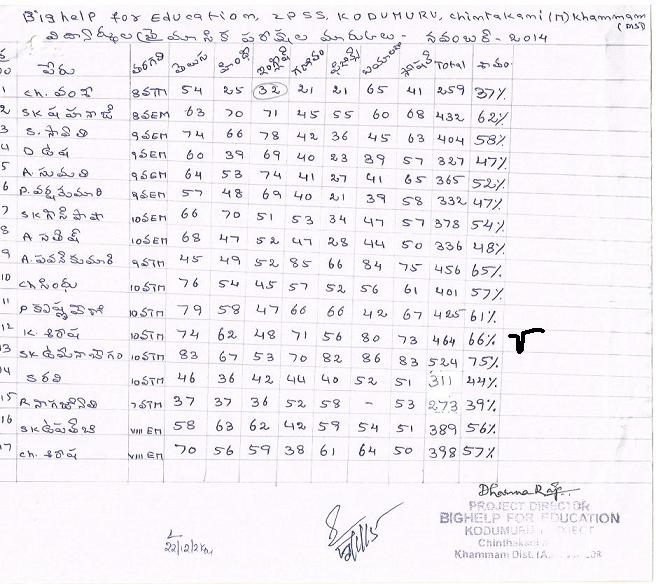 Bighelp for Education, ZPSS, KODUMURU, Chintakani (M) Khammam (Dist)
విద్యార్థుల త్రై మాసిక పరీక్షల మార్కులు - నవంబర్ - 2014
పేరు తరగతి తెలుగు హిందీ ఇంగ్లీష్ గణితం బయాలజీ సోషల్ Total శాతం
1 Ch. 8వTM 54 25 32 21 21 65 41 259 37%
2 SK 8వEM 63 70 71 45 55 60 68 432 62%
3 S. 9వEM 74 66 78 42 36 45 63 404 58%
4 D ఉష 9వEM 60 39 69 40 23 39 57 327 47%
5 A. సుమతి 9వEM 64 53 74 41 27 41 65 365 52%
6 P. 9వEM 57 48 69 40 21 39 58 332 47%
7 SK 10వEM 66 70 51 53 34 47 57 378 54%
8 A 10వEM 68 47 52 47 28 44 50 336 48%
9 A. పవన్ కుమారి 9వTM 45 49 52 85 66 84 75 456 65%
10 Ch సింధు 10వTM 76 54 45 57 52 56 61 401 57%
11 P 10వTM 79 58 47 66 66 42 67 425 61%
12 K. శిరీష 10వTM 74 62 48 71 56 80 73 464 66%
13 SK 10వTM 83 67 53 70 82 86 83 524 75%
14 S రవి 10వTM 46 36 42 44 40 52 51 311 44%
15 R. నాగజ్యోతి 7వTM 37 37 36 52 58 - 53 273 39%
16 SK VIII EM 58 63 62 42 59 54 51 389 56%
17 Ch. శిరీష VIII EM 70 56 59 38 61 64 50 398 57%
Dharma
PROJECT DIRECTOR
BIGHELP FOR EDUCATION
KODUMURU PROJECT
22/12/2014
Chinthakani
Khammam Dist.